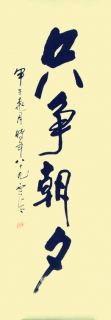 只争朝夕
甲子秋月时年八十九